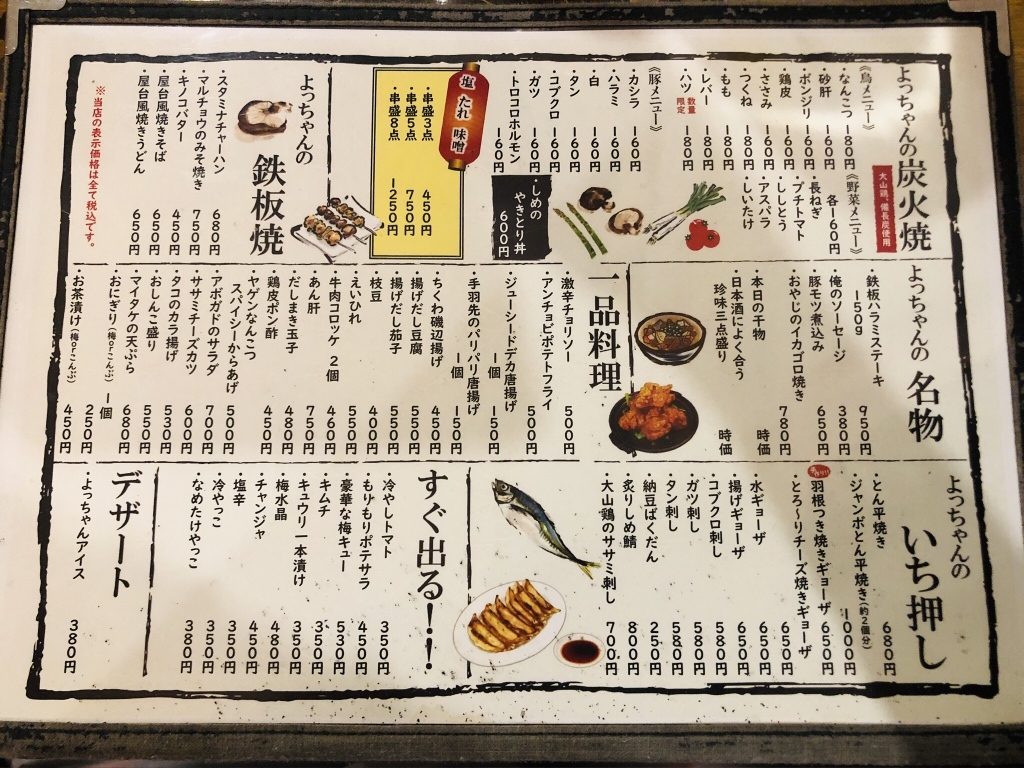 よっちゃんの炭火焼
大山鶏、備長炭使用
《鳥メニュー》
・なんこつ 180円
・砂肝 160円
・ボンジリ 160円
・鶏皮 160円
・ささみ 160円
・つくね 180円
・もも 180円
・レバー 180円
・ハツ 数量限定 180円
《豚メニュー》
・カシラ 160円
・ハラミ 160円
・白 160円
・タン 160円
・コブクロ 160円
・ガツ 160円
・トロコロホルモン 160円
《野菜メニュー》
各160円
・長ねぎ
・プチトマト
・ししとう
・アスパラ
・しいたけ
・しめのやきとり丼 600円
塩 たれ 味噌
・串盛3点 450円
・串盛5点 750円
・串盛8点 1250円
よっちゃんの 鉄板焼
・スタミナチャーハン 680円
・マルチョウのみそ焼き 750円
・キノコバター 450円
・屋台風焼きそば 650円
・屋台風焼きうどん 650円
※当店の表示価格は全て税込です。
よっちゃんの 名物
・鉄板ハラミステーキ 150g 950円
・俺のソーセージ 380円
・豚モツ煮込み 650円
・おやじのイカゴロ焼き 780円
・本日の干物 時価
・日本酒によく合う珍味三点盛り 時価
一品料理
・激辛チョリソー 500円
・アンチョビポテトフライ 500円
・ジューシードデカ唐揚げ 1個 150円
・手羽先のパリパリ唐揚げ 1個 150円
・ちくわ磯辺揚げ 450円
・揚げだし豆腐 550円
・揚げだし茄子 550円
・枝豆 400円
・えいひれ 550円
・牛肉コロッケ 2個 460円
・あん肝 750円
・だしまき玉子 480円
・鶏皮ポン酢 450円
・ヤゲンなんこつスパイシーからあげ 500円
・アボガドのサラダ 700円
・ササミチーズカツ 600円
・タコのカラ揚げ 530円
・おしんこ盛り 550円
・マイタケの天ぷら 680円
・おにぎり(梅orこんぶ) 1個 250円
・お茶漬け(梅orこんぶ) 450円
よっちゃんの いち押し
・とん平焼き 680円
・ジャンボとん平焼き(約2個分) 1000円
・羽根つき焼きギョーザ 650円
・とろ～りチーズ焼きギョーザ 650円
・水ギョーザ 650円
・揚げギョーザ 650円
・コブクロ刺し 580円
・ガツ刺し 580円
・タン刺し 580円
・納豆ばくだん 250円
・炙りしめ鯖 800円
・大山鶏のササミ刺し 700円
すぐ出る!!
・冷やしトマト 350円
・もりもりポテサラ 450円
・豪華な梅キュー 530円
・キムチ 350円
・キュウリ一本漬け 350円
・梅水晶 480円
・チャンジャ 450円
・塩辛 350円
・冷やっこ 350円
・なめたけやっこ 380円
デザート
・よっちゃんアイス 380円